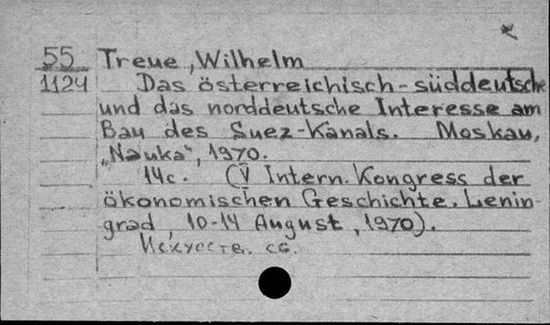 55 Treue, Wilhelm
1124 Das österreichisch-süddeutsche
und das norddeutsche Interesse am
Bau des Suez-Kanals. Moskau,
„Nauka", 1970.
14c. (V Intern. Kongress der
ökonomischen Geschichte. Lenin-
grad, 10-14 August, 1970).
Искусств. сб.